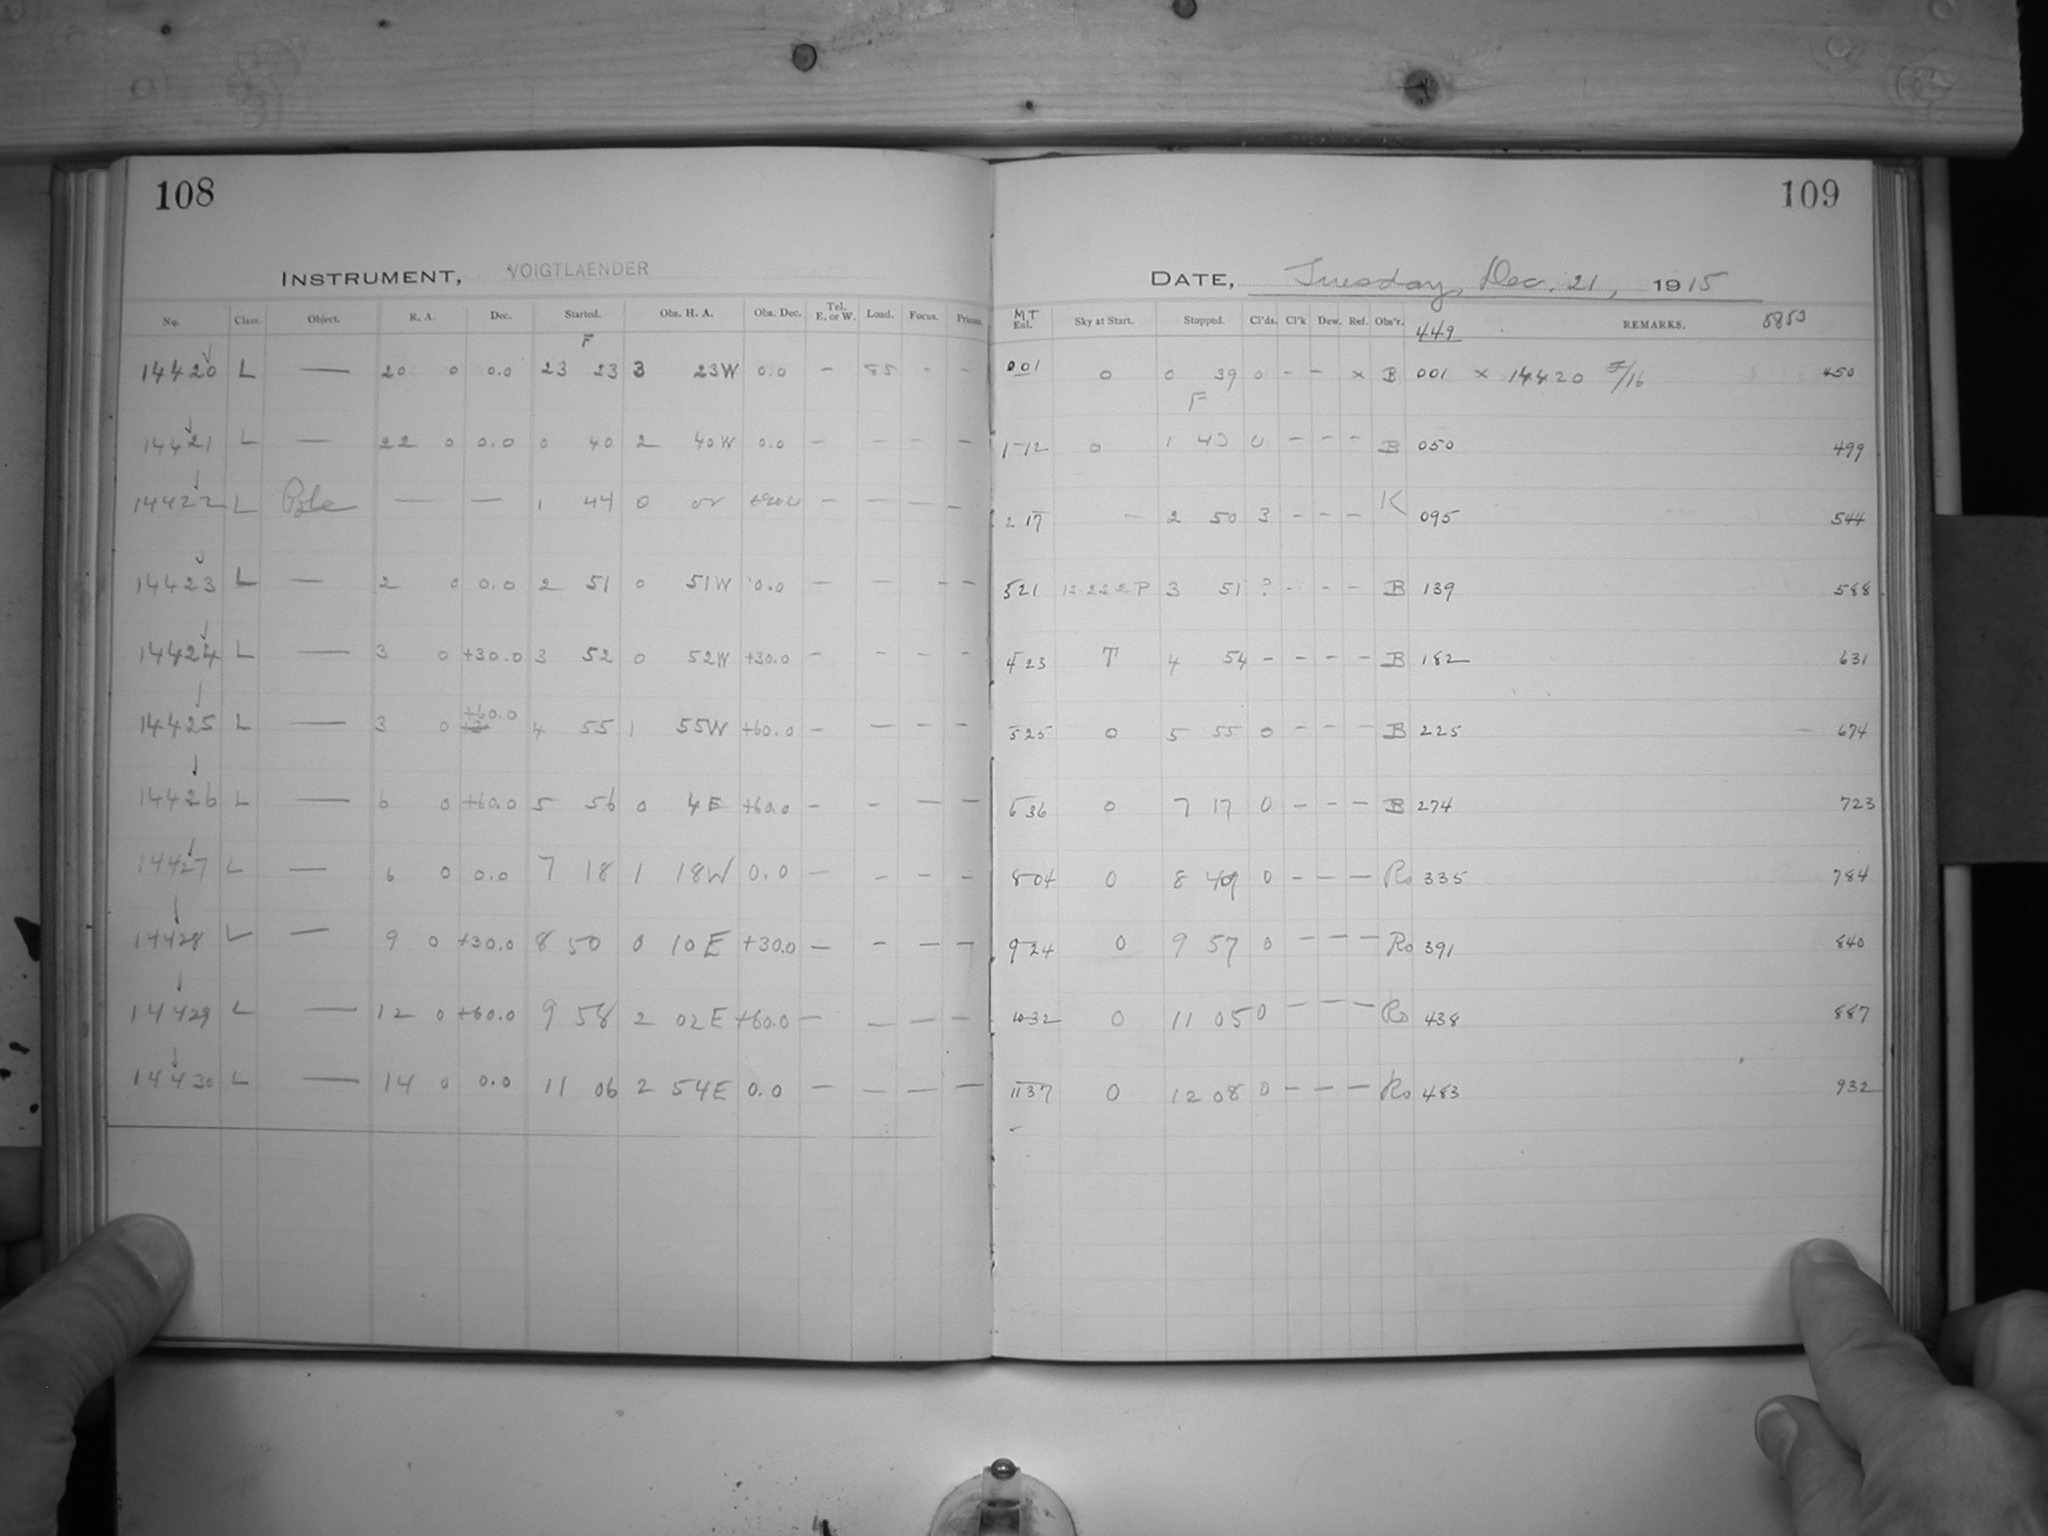 108
109
INSTRUMENT, VOIGTLAENDER
DATE, Tuesday, Dec. 21, 1915
No. Class. Object. R. A. Dec. Started. Obs. H. A. Obs. Dec. Tel. E. or W. Load. Focus. Prisms.
MT Enl. Sky at Start. Stopped. Cl'ds. Cl'k Dew. Ref. Obs'r. 449 REMARKS. 8853
F
14420 L — 20 0 0.0 23 23 3 23W 0.0 — 85 - - 001 0 0 39 0 - - x B 001 x 14420 /16 450
F
14421 L — 22 0 0.0 0 40 2 40W 0.0 — - - - 1 12 0 1 43 0 - - - B 050 499
14422 L Pole — — 1 44 0 — — — - 2 17 — 2 50 3 - - - K 095 544
14423 L — 2 0 0.0 2 51 0 51W 0.0 — — - - 321 3 51 ? - - - B 139 588
14424 L — 3 0 +30.0 3 52 0 52W +30.0 - - - - 423 T 4 54 - - - - B 182 631
14425 L — 3 0 +60.0 4 55 1 55W +60.0 - — - - 525 0 5 55 0 - - - B 225 674
14426 L — 6 0 +60.0 5 56 0 4E +60.0 - - — — 636 0 7 17 0 - - - B 274 723
14427 L — 6 0 0.0 7 18 1 18W 0.0 — - - - 804 0 8 49 0 - - — Ro 335 784
14428 L — 9 0 +30.0 8 50 0 10E +30.0 — - — — 924 0 9 57 0 — — — Ro 391 840
14429 L — 12 0 +60.0 9 58 2 02E +60.0 — — — — 1032 0 11 05 0 — — — Ro 438 887
14430 L — 14 0 0.0 11 06 2 54E 0.0 — — — — 1137 0 12 08 0 — — — Ro 483 932